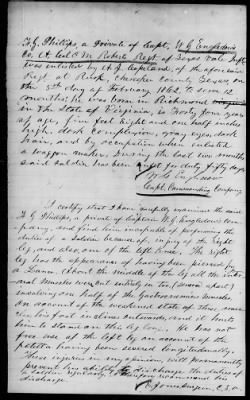 T. G. Phillips, a Private of Capt. W. G. Engledow's
Co. A Col. O. M. Roberts Regt. of Texas Vols. Inft.
was enlisted by A. J. Copeland, of the aforesaid
Regt at Rusk, Cherokee County Texas on
the 5th day of February 1862, to serve 12
months; he was born in Richmond
in the State of Virginia, is Forty four years
of age, five feet Eight and one half inches
high, dark complexion, gray eyes, dark
hair, and by occupation when enlisted
a wagon maker. During the last two months
said soldier has been unfit for duty fifty days.
W. G. Engledow
Capt. Commanding Company
I certify that I have carefully examined the said
T. G. Phillips, a private of Captain W. G. Engledow's Com-
pany, and find him incapable of performing the
duties of a Soldier because of injury of the Right
leg and also, one of the left knee. The right
leg has the appearance of having been pierced by
a Lance. About the middle of the leg all the exter-
nal muscles were cut entirely in two,
one half of the gastrocnemius muscle
on account of the weakened state of these mus-
cles his foot inclines outwards, and it hurts
him to stand on this leg long. He has not
free use of the left by an account of the
patella having been severed longitudinally.
These injuries in my opinion, will permanently
prevent his ability to discharge the duties of
a Soldier regularly, I therefore recommend his
discharge.